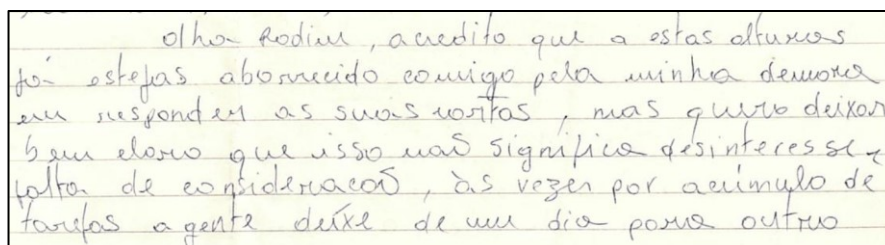 olha Rodim, acredito que a estas alturas
já estejas aborrecido comigo pela minha demora
em responder as suas cartas, mas quero deixar
bem claro que isso não significa desinteresse e
falta de consideração, às vezes por acúmulo de
tarefas a gente deixe de um dia para outro